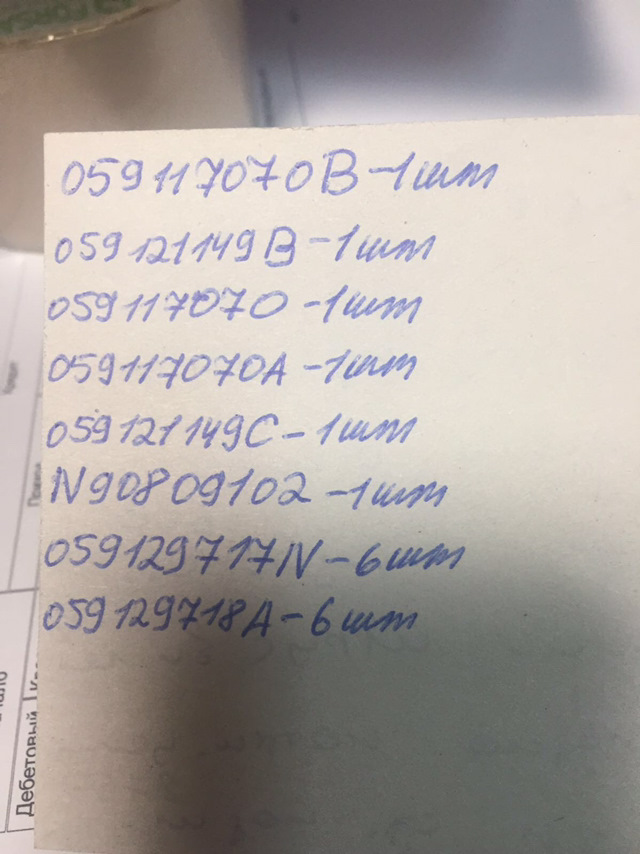 059117070B - 1шт
059121149B - 1шт
059117070 - 1шт
059117070A - 1шт
059121149C - 1шт
N90809102 - 1шт
059129717N - 6шт
059129718A - 6шт
Дебетовый